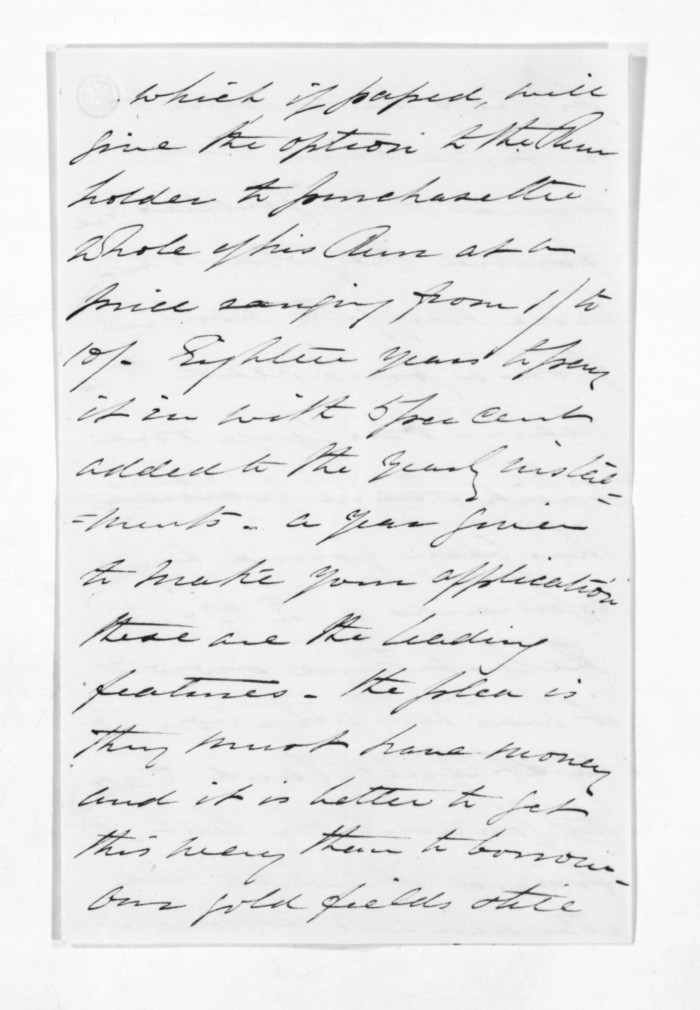 which if passed, will
give the option to the Run
holder to purchase the
whole of his Run at a
price ranging from 1/ to
10/- Eighteen years to pay
it in with 5 per cent
added to the yearly instal=
=ments - a year given
to make your application
these are the leading
features - the plea is
they must have money
and it is better to get
this way than to borrow -
Our gold fields still